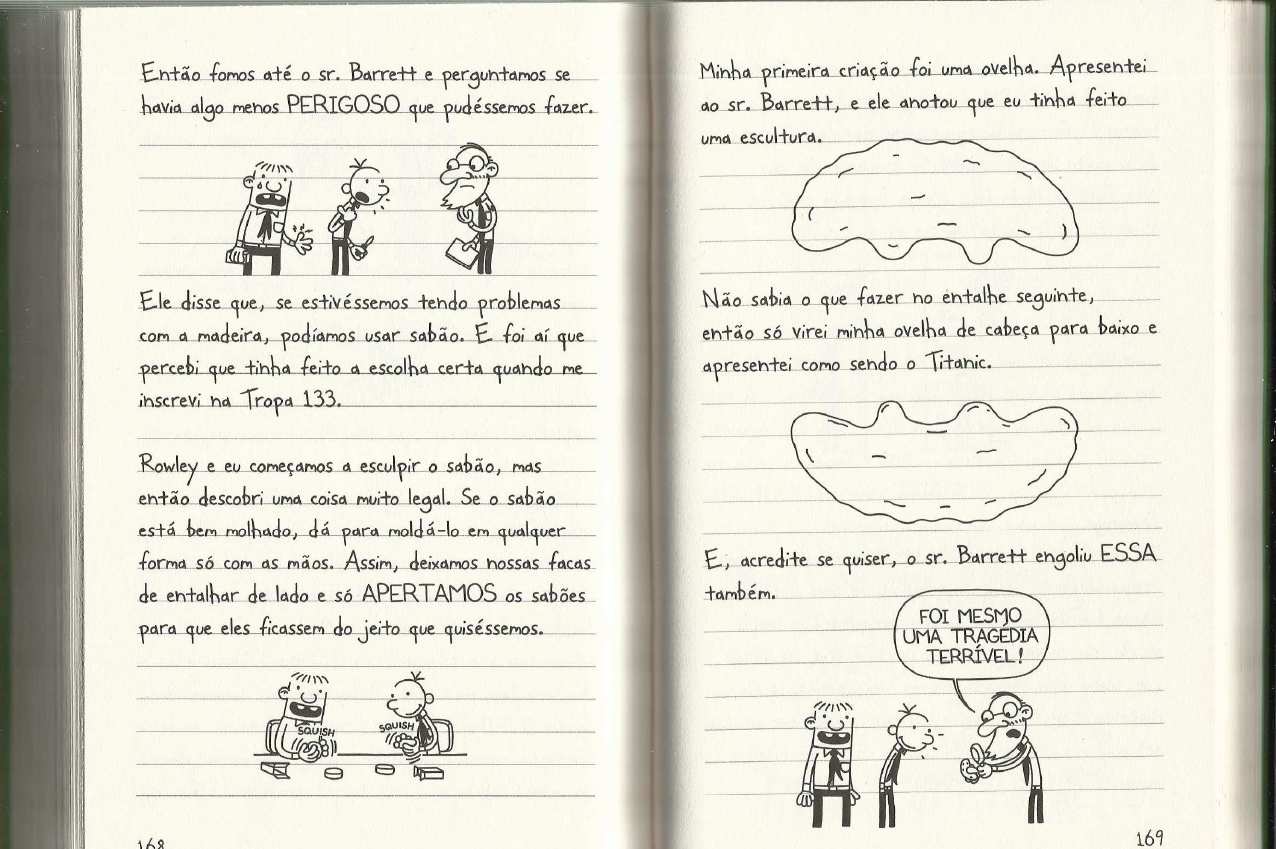 Então fomos até o sr. Barrett e perguntamos se
havia algo menos PERIGOSO que pudéssemos fazer.
Ele disse que, se estivéssemos tendo problemas
com a madeira, podíamos usar sabão. E foi aí que
percebi que tinha feito a escolha certa quando me
inscrevi na Tropa 133.
Rowley e eu começamos a esculpir o sabão, mas
então descobri uma coisa muito legal. Se o sabão
está bem molhado, dá para moldá-lo em qualquer
forma só com as mãos. Assim, deixamos nossas facas
de entalhar de lado e só APERTAMOS os sabões
para que eles ficassem do jeito que quiséssemos.
SQUISH
SQUISH
168
Minha primeira criação foi uma ovelha. Apresentei
ao sr. Barrett, e ele anotou que eu tinha feito
uma escultura.
Não sabia o que fazer no entalhe seguinte,
então só virei minha ovelha de cabeça para baixo e
apresentei como sendo o Titanic.
E, acredite se quiser, o sr. Barrett engoliu ESSA
também.
FOI MESMO
UMA TRAGÉDIA
TERRÍVEL!
169